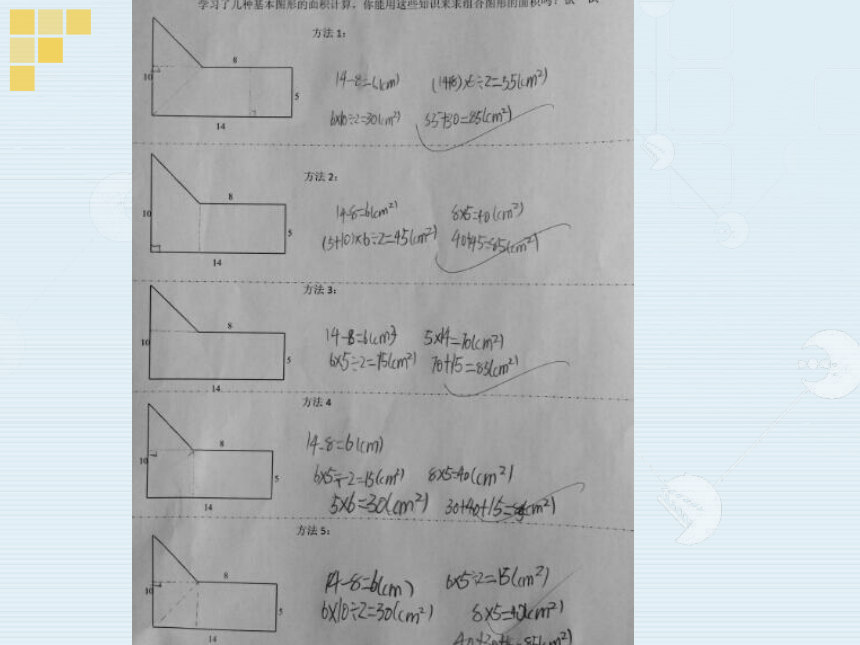 学习了几种基本图形的面积计算，你能用这些知识来求组合图形的面积吗？试一试
方法 1：
8
10
5
14
14-8=6(cm) (14+8)×5÷2=55(cm²)
6×10÷2=30(cm²) 55+30=85(cm²)
方法 2：
8
10
5
14
14-8=6(cm²) 8×5=40(cm²)
(5+10)×6÷2=45(cm²) 40+45=85(cm²)
方法 3：
8
10
5
14
14-8=6(cm²) 5×14=70(cm²)
6×5÷2=15(cm²) 70+15=85(cm²)
方法 4
8
10
5
14
14-8=6(cm)
6×5÷2=15(cm²) 8×5=40(cm²)
5×6=30(cm²) 30+40+15=85(cm²)
方法 5：
8
10
5
14
14-8=6(cm) 6×5÷2=15(cm²)
6×10÷2=30(cm²) 8×5=40(cm²)